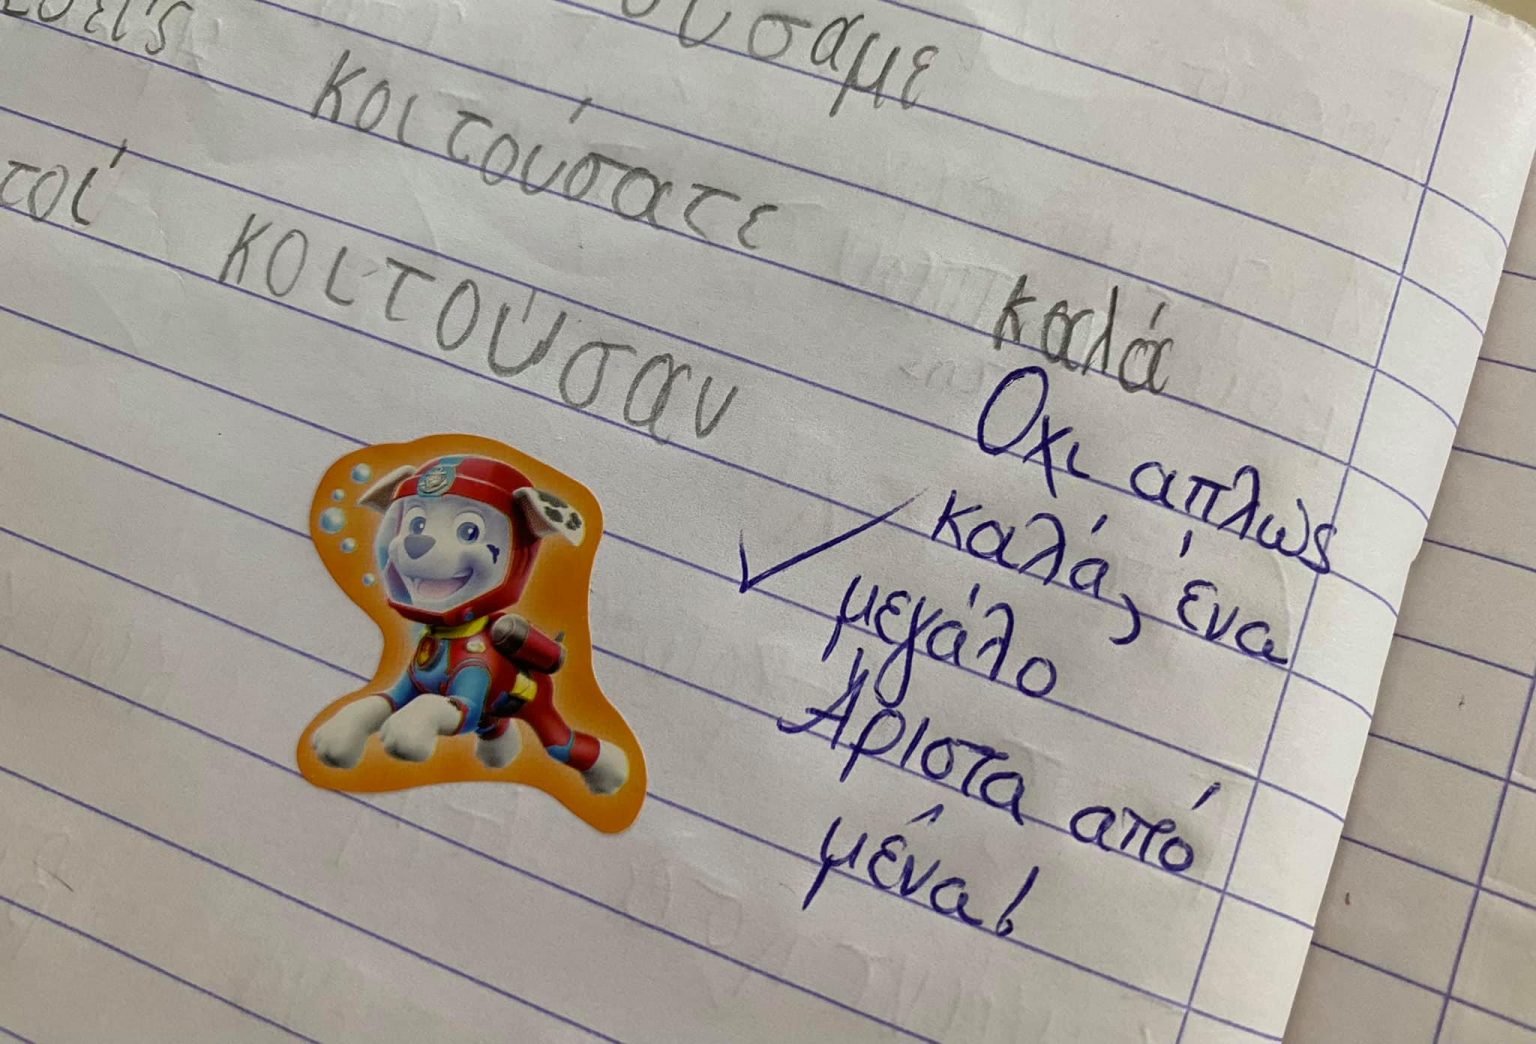 ουσαμε
σείς κοιτούσατε
τοί κοιτούσαν
καλά
Οχι απλως
καλά, ένα
μεγάλο
Άριστα από
μένα!